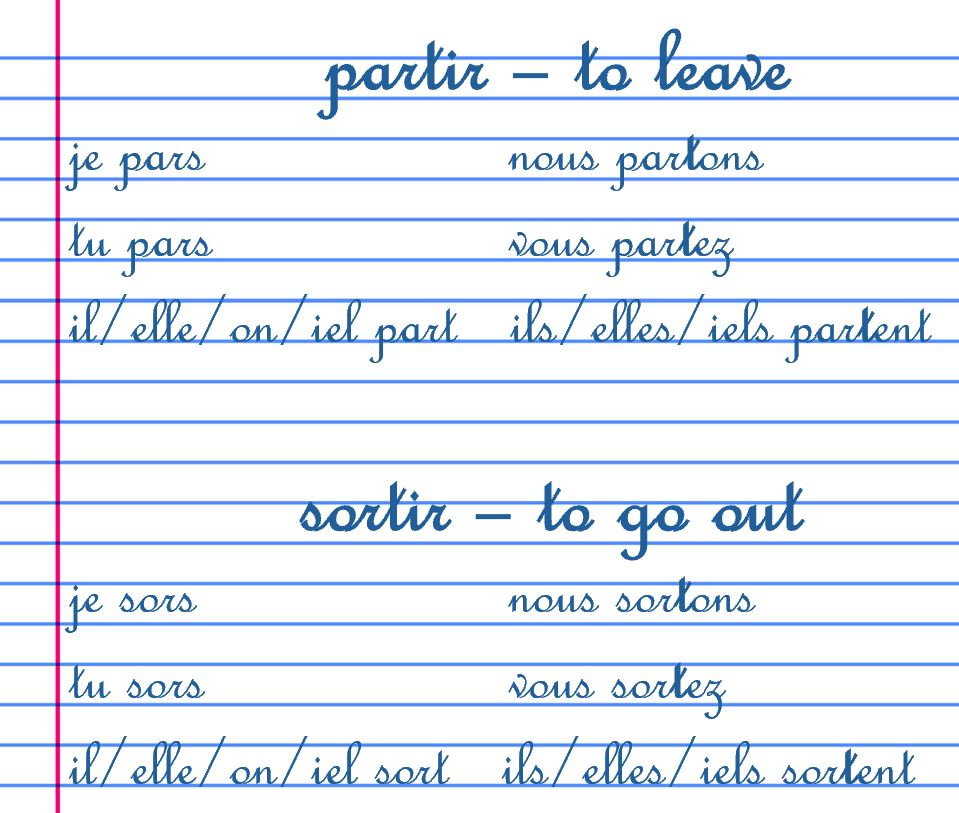 partir – to leave
je pars nous partons
tu pars vous partez
il/elle/on/iel part ils/elles/iels partent
sortir – to go out
je sors nous sortons
tu sors vous sortez
il/elle/on/iel sort ils/elles/iels sortent